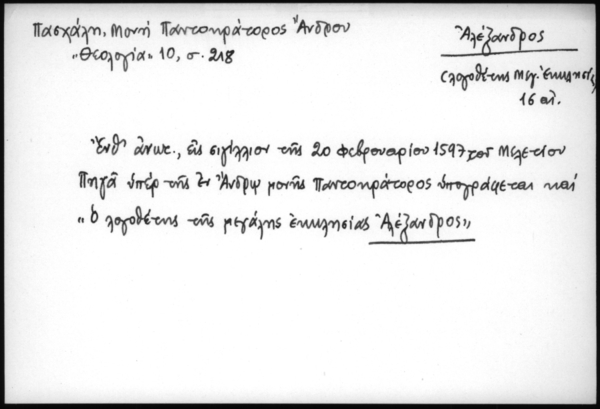 Πασχάλη, Μονή Παντοκράτορος Ἄνδρου
"Θεολογία" 10, σ. 218
Ἀλέξανδρος
(λογοθέτης Μεγ. Ἐκκλησίας)
16 αἰ.
Ἔνθ' ἀνωτ., εἰς σιγίλλιον τῆς 20 Φεβρουαρίου 1597 τοῦ Μελετίου
Πηγᾶ ὑπέρ τῆς ἐν Ἄνδρῳ μονῆς Παντοκράτορος ὑπογράφεται καί
"ὁ λογοθέτης τῆς μεγάλης ἐκκλησίας Ἀλέξανδρος"